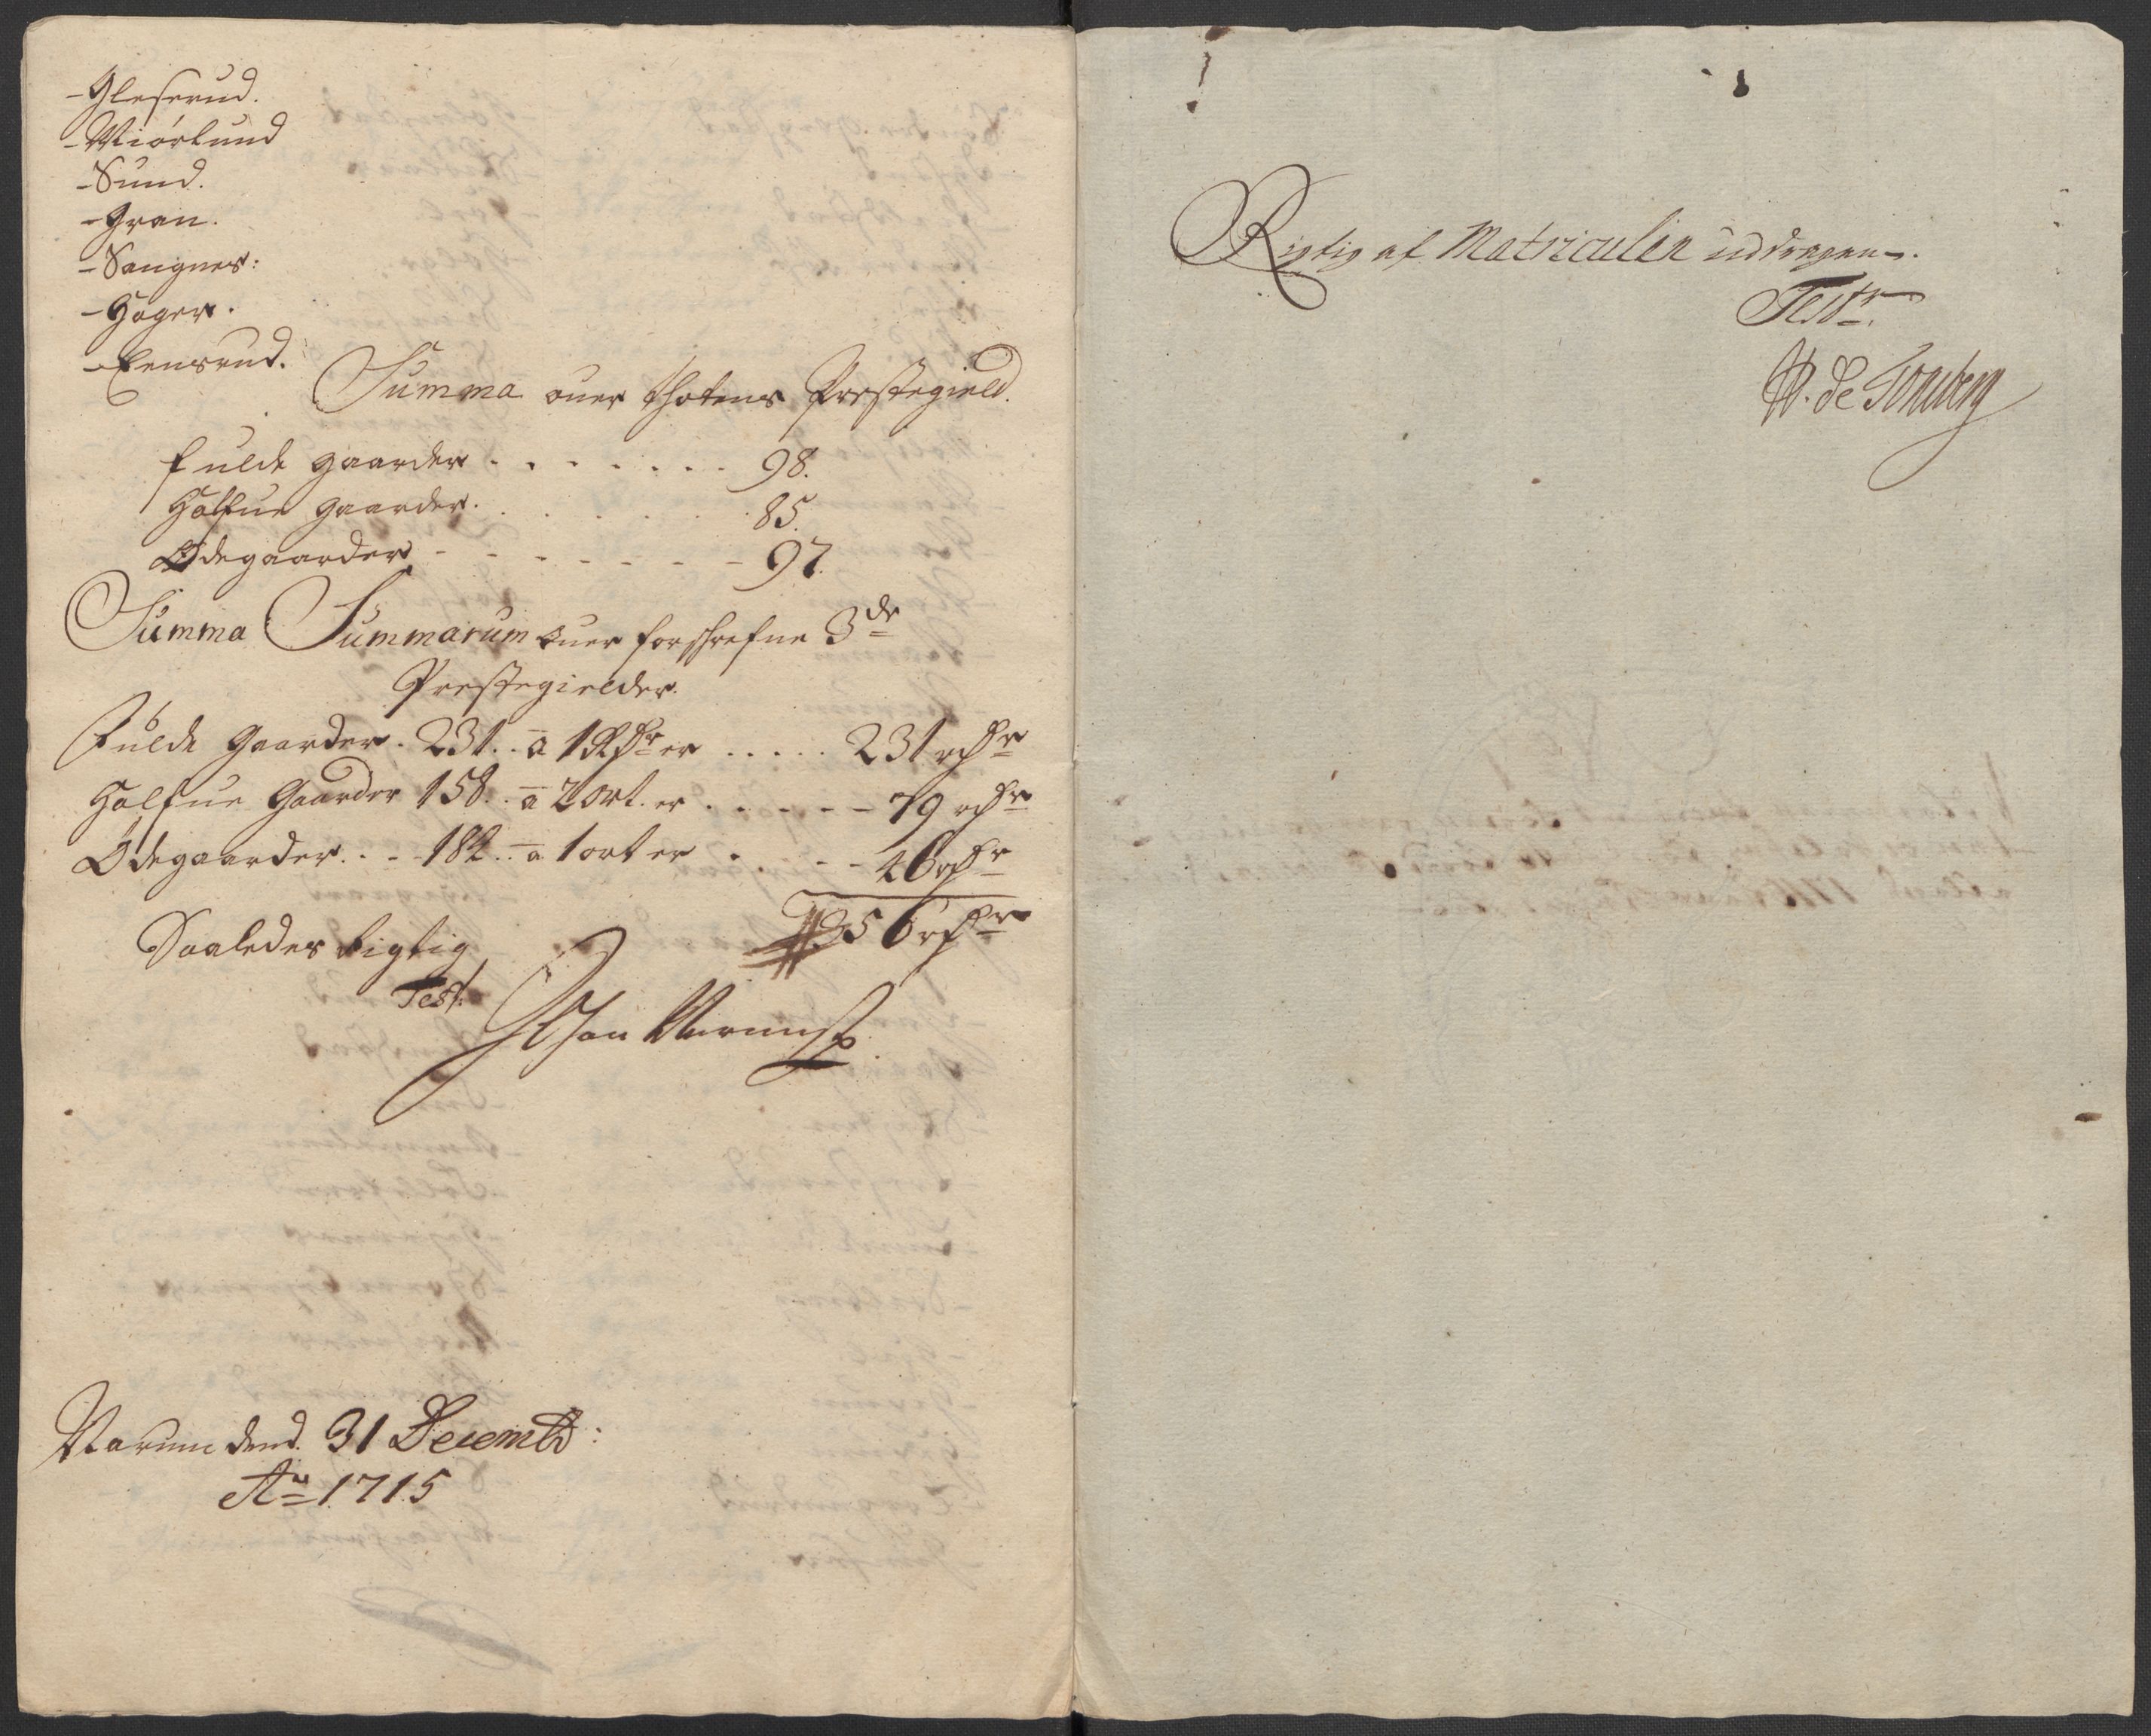 - Gleserud.
- Wiörlund
- Sund.
- Gran.
- Sangnes:
- Hager.
- Eensrud.
Summa ouer Thotens Prestegield.
fulde gaarder . . . . . . . 98.
Halfue gaarder . . . . . . 85.
Ødegaarder - - - - - - - 97.
Summa Summarum ouer forschrefne 3de
Prestegielder.
Fulde Gaarder. 231. . a 1 Rdhr er . . . . . 231 rdhr
Halfue Gaarder 158. . a 2 ort. er . . . . - - 79 rdhr
Ødegaarder. . - - 182. . a 1 ort er . . - - 46 rdhr
356 rdhr
Saaledes Rigtig
Test:
Narum dend. 31 Decembr:
Ao 1715
Rigtig af Matriculen uddragen.
Testr.